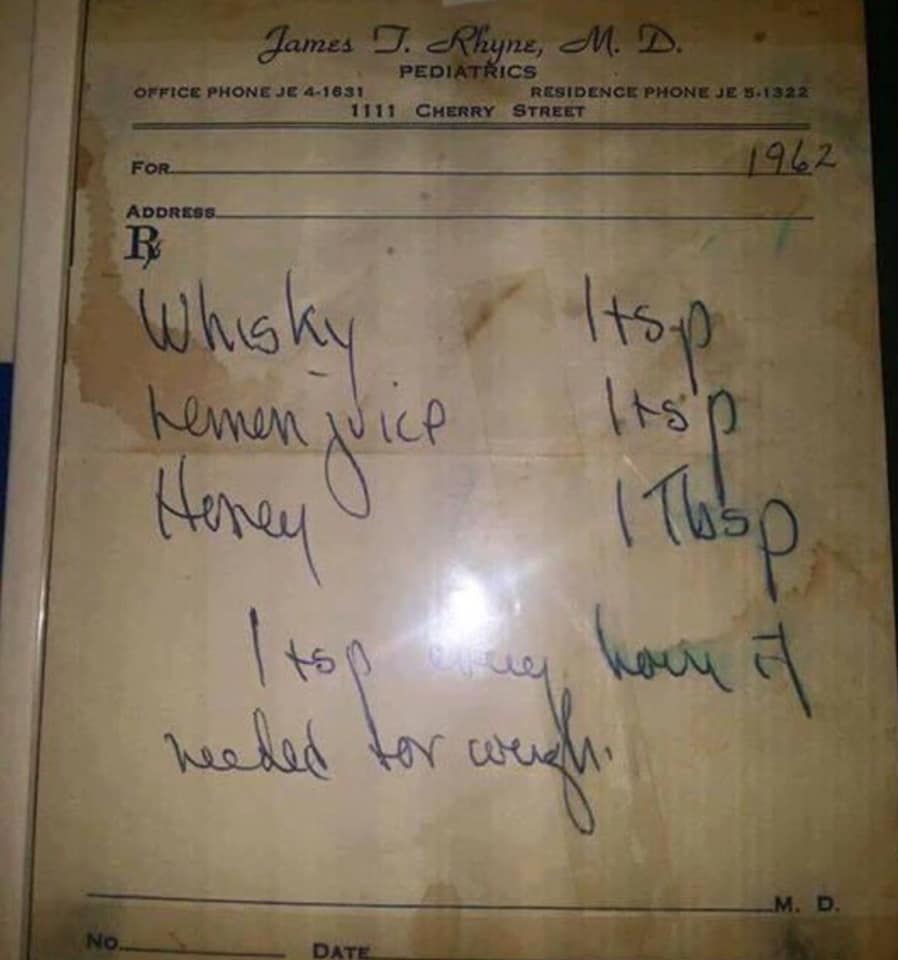 James T. Rhyne, M. D.
PEDIATRICS
OFFICE PHONE JE 4-1631 RESIDENCE PHONE JE 5-1322
1111 CHERRY STREET
FOR 1962
ADDRESS
℞
Whisky 1 tsp
Lemon juice 1 tsp
Honey 1 Tbsp
1 tsp every hour if
needed for cough.
M. D.
NO. DATE